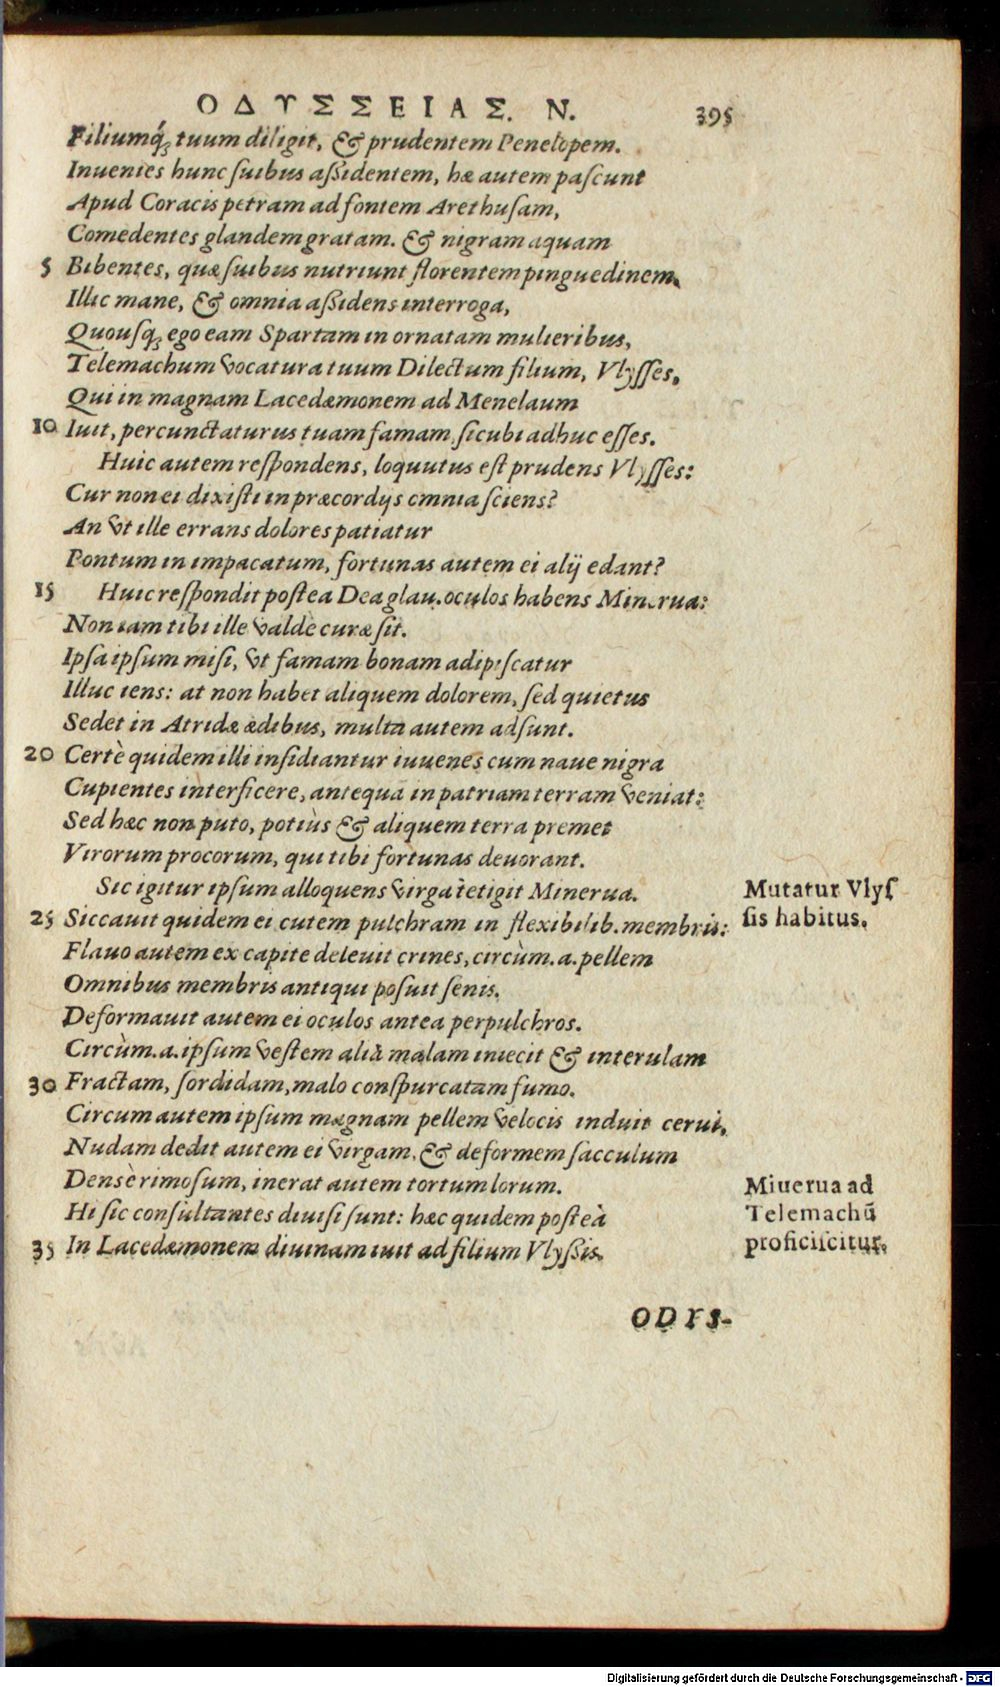 ΟΔΥΣΣΕΙΑΣ. Ν. 395
Filiumq́; tuum diligit, & prudentem Penelopem.
Inuenies hunc ſuibus aßidentem, hæ autem paſcunt
Apud Coracis petram ad fontem Arethuſam,
Comedentes glandem gratam. & nigram aquam
5 Bibentes, quæ ſuibus nutriunt florentem pinguedinem.
Illic mane, & omnia aßidens interroga,
Quouſq; ego eam Spartam in ornatam mulieribus,
Telemachum vocatura tuum Dilectum filium, Vlyſſes.
Qui in magnam Lacedæmonem ad Menelaum
10 Iuit, percunctaturus tuam famam, ſicubi adhuc eſſes.
Huic autem reſpondens, loquutus eſt prudens Vlyſſes:
Cur non ei dixiſti in præcordijs omnia ſciens?
An vt ille errans dolores patiatur
Pontum in impacatum, fortunas autem ei alij edant?
15 Huic reſpondit poſtea Dea glau. oculos habens Minerua:
Non iam tibi ille valdè curæ ſit.
Ipſa ipſum miſi, vt famam bonam adipiſcatur
Illuc iens: at non habet aliquem dolorem, ſed quietus
Sedet in Atridæ ædibus, multa autem adſunt.
20 Certè quidem illi inſidiantur iuuenes cum naue nigra
Cupientes interficere, antequā in patriam terram veniat:
Sed hæc non puto, potiùs & aliquem terra premet
Virorum procorum, qui tibi fortunas deuorant.
Sic igitur ipſum alloquens virga tetigit Minerua.
25 Siccauit quidem ei cutem pulchram in flexibilib. membris:
Flauo autem ex capite deleuit crines, circùm. a. pellem
Omnibus membris antiqui poſuit ſenis.
Deformauit autem ei oculos antea perpulchros.
Circùm. a. ipſum veſtem aliā malam iniecit & interulam
30 Fractam, ſordidam, malo conſpurcatam fumo.
Circum autem ipſum magnam pellem velocis induit cerui,
Nudam dedit autem ei virgam, & deformem ſacculum
Densè rimoſum, inerat autem tortum lorum.
Hi ſic conſultantes diuiſi ſunt: hæc quidem poſteà
35 In Lacedæmonem diuinam iuit ad filium Vlyßis.
Mutatur Vlyſ
ſis habitus.
Miuerua ad
Telemachū
proficiſcitur.
ODYS-
Digitalisierung gefördert durch die Deutsche Forschungsgemeinschaft - DFG